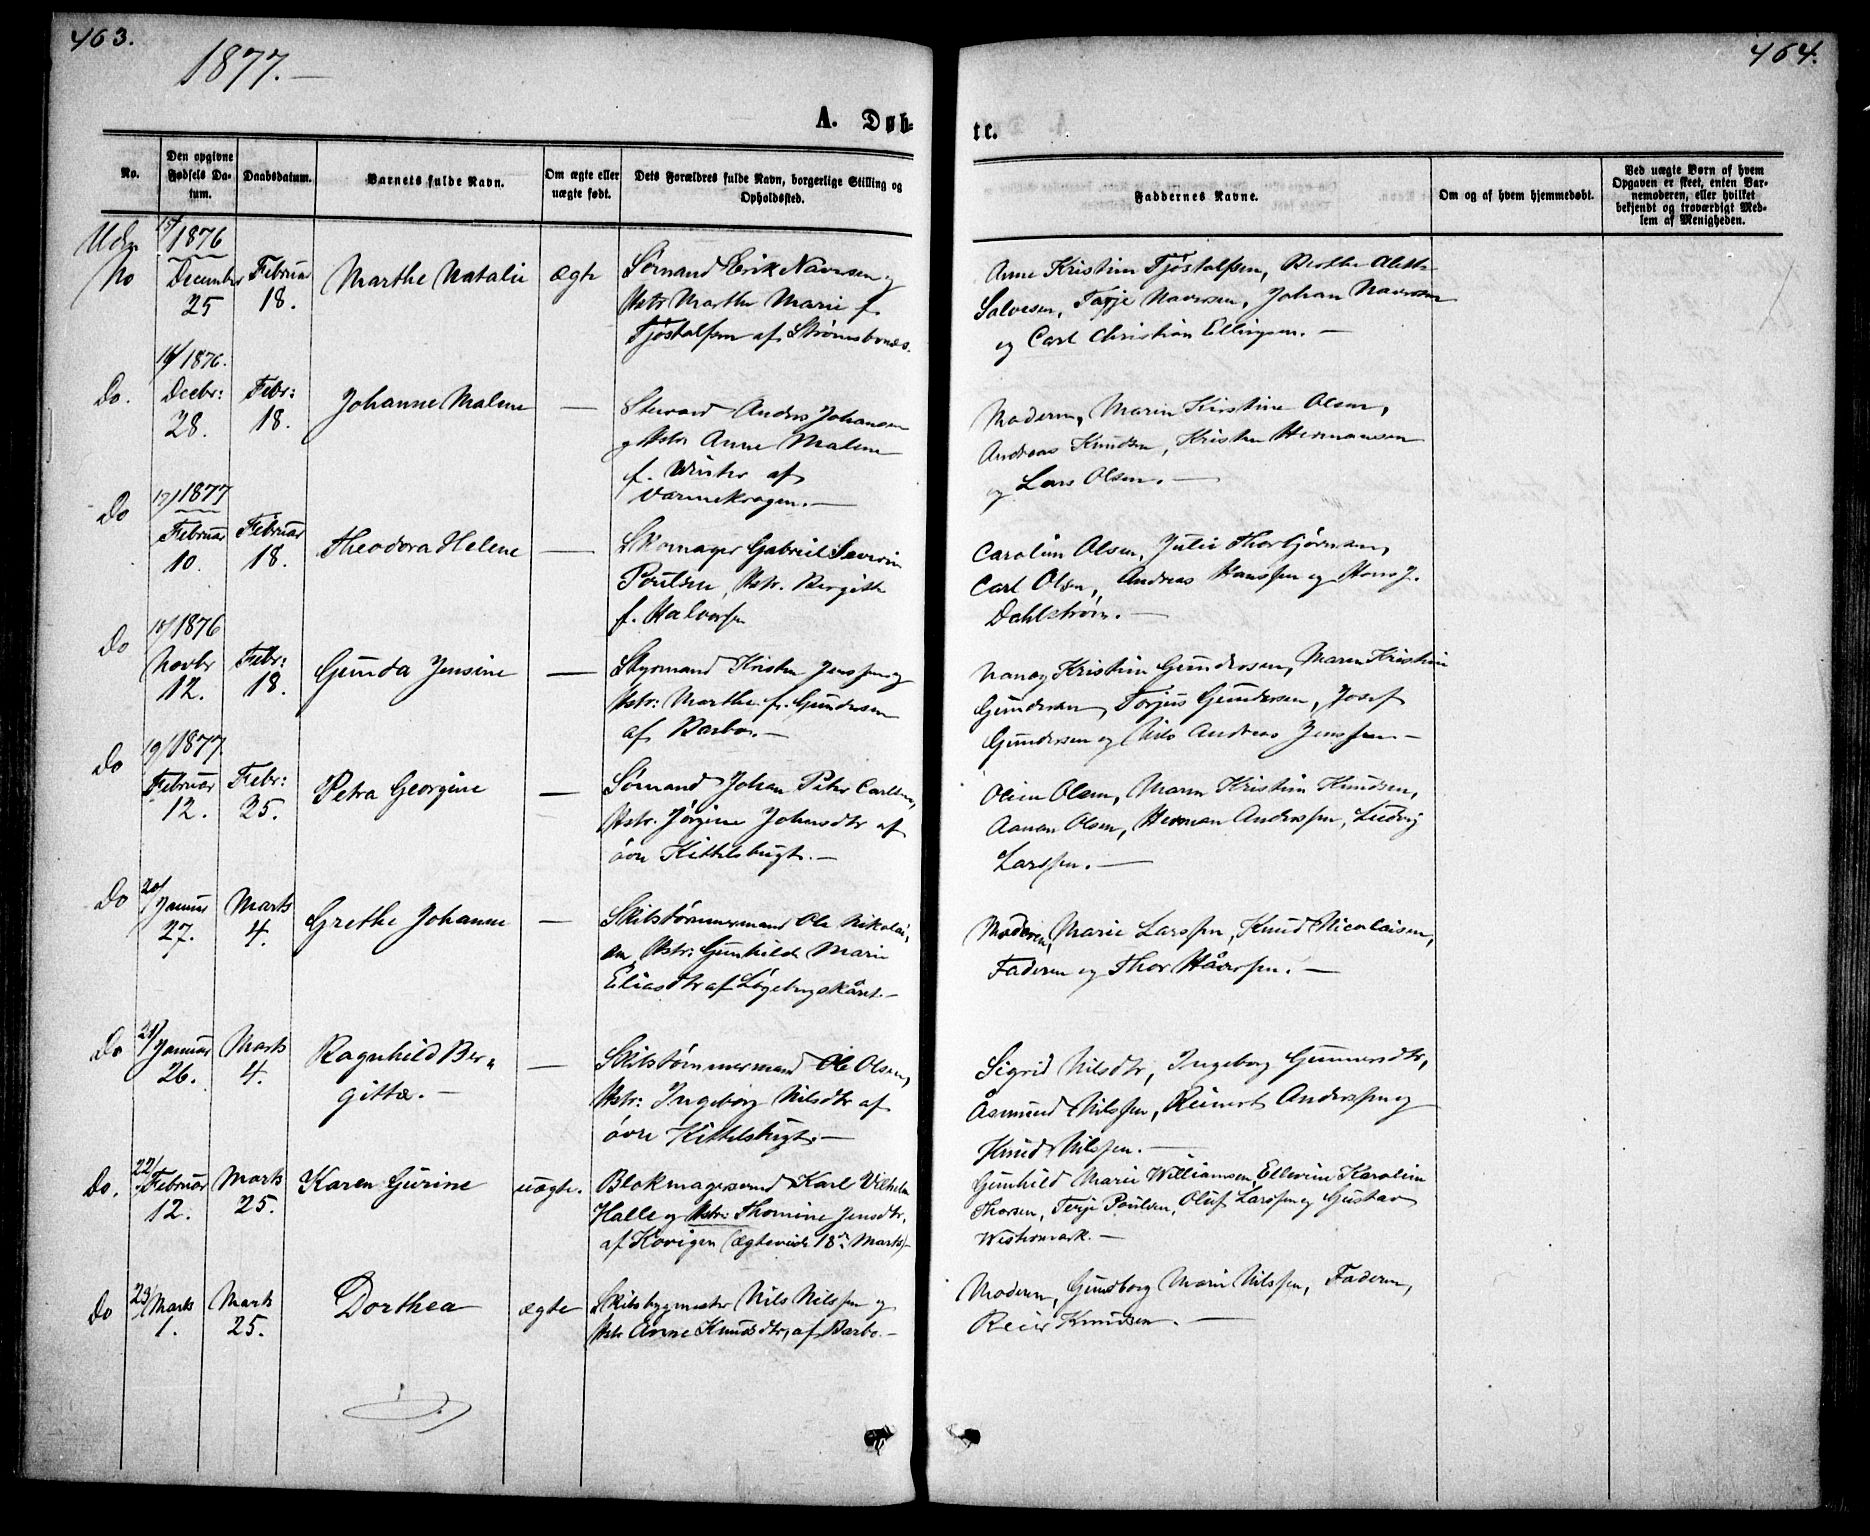 463.
1877.—
A. Døb-
No.
Den opgivne Fødsels Da-tum.
Daabsdatum.
Barnets fulde Navn.
Om ægte eller uægte født.
Dets Forældres fulde Navn, borgerlige Stilling og Opholdssted.
Udøb 15/ 1876
No December 25 Februar 18. Marthe Natalie ægte Sømand Erik Naversen og
Hstr Marthe Marie f.
Tjøstolfsen af Strømsbonæs.
16/ 1876.
Do. Decbr: 28. Febr: 18. Johanne Malene — Steward Anders Johansen
og Hstr Anne Malene
f. Winter af
Varmekrogen.—
Do 17/ 1877
Februar 10. Februar 18. Theodora Helene — Skomager Gabriel Severin
Poulsen, Hstr. Bergithe
f. Halvorsen
Do 18/ 1876
Novbr 12. Febr: 18. Gunda Jensine — Styrmand Kristen Jenssen og
Hstr: Marthe f. Gundersen
af Barbo.—
Do 19/ 1877.
Februar 12. Febr: 25. Petra Georgine — Sømand Johan Peter Carlsen,
Hstr. Jørgine Johnsdtr af
øvre Kittelsbugt.—
Do 20/ Januar 27. Marts 4. Grethe Johanne — Skibstømmermand Ole Nikolai-
sen, Hstr: Gunhilde Marie
Eliasdtr af Løgebergskåret.—
Do 21/ Januar 26. Marts 4. Ragnhild Ber-
gitta.— — Skibstømmermand Ole Olsen,
Hstr: Ingeborg Nilsdtr af
øvre Kittelsbugt.—
Do. 22/ Februar 12. Marts 25. Karen Gurine uægte. Blokmagersvend Karl Vilhelm
Halle og Hstr: Thomine Jensdtr,
af Kovigen (Ægteviede 18de Marts)—
Do 23/ Marts 1. Marts 25. Dorthea ægte Skibsbygmester Nils Nilssen og
Hstr Anne Knudsdtr, af Barbo.—
464.
te.
Faddernes Navne.
Om og af hvem hjemmedøbt.
Ved uægte Børn af hvem Opgaven er skeet, enten Bar-nemoderen, eller hvilket bekjendt og troværdigt Med-lem af Menigheden.
Anne Kristine Tjøstolfsen, Berthe Alette
Salvesen, Terje Naversen, Johan Naversen
og Carl Christian Ellingsen.—
Moderen, Maren Kirstine Olsen,
Andreas Knudsen, Kristen Hermansen
og Lars Olsen.—
Caroline Olsen, Julie Thorbjørnsen,
Carl Olsen, Andreas Hanssen og Hans J.
Dahlstrøm.—
Nanay Kristine Gundersen, Maren Kristine
Gundersen, Torjus Gundersen, Josef
Gundersen og Nils Andreas Jenssen.—
Oline Olsen, Maren Kristine Knudsen,
Aanon Olsen, Herman Anderssen, Ludvig
Larssen.—
Moderen, Marie Larssen, Knud Nicolaisen,
Faderen og Thor Håversen.—
Sigrid Nilsdtr, Ingeborg Gunnersdtr,
Åsmund Nilssen, Reinert Anderssen og
Knud Nilssen.—
Gunhild Marie Williamsen, Ellevine Karoline
Thorsen, Terje Poulsen, Oluf Larssen og Gustav
Westermark.—
Moderen, Gundborg Marie Nilssen, Faderen,
Reier Knudsen.—